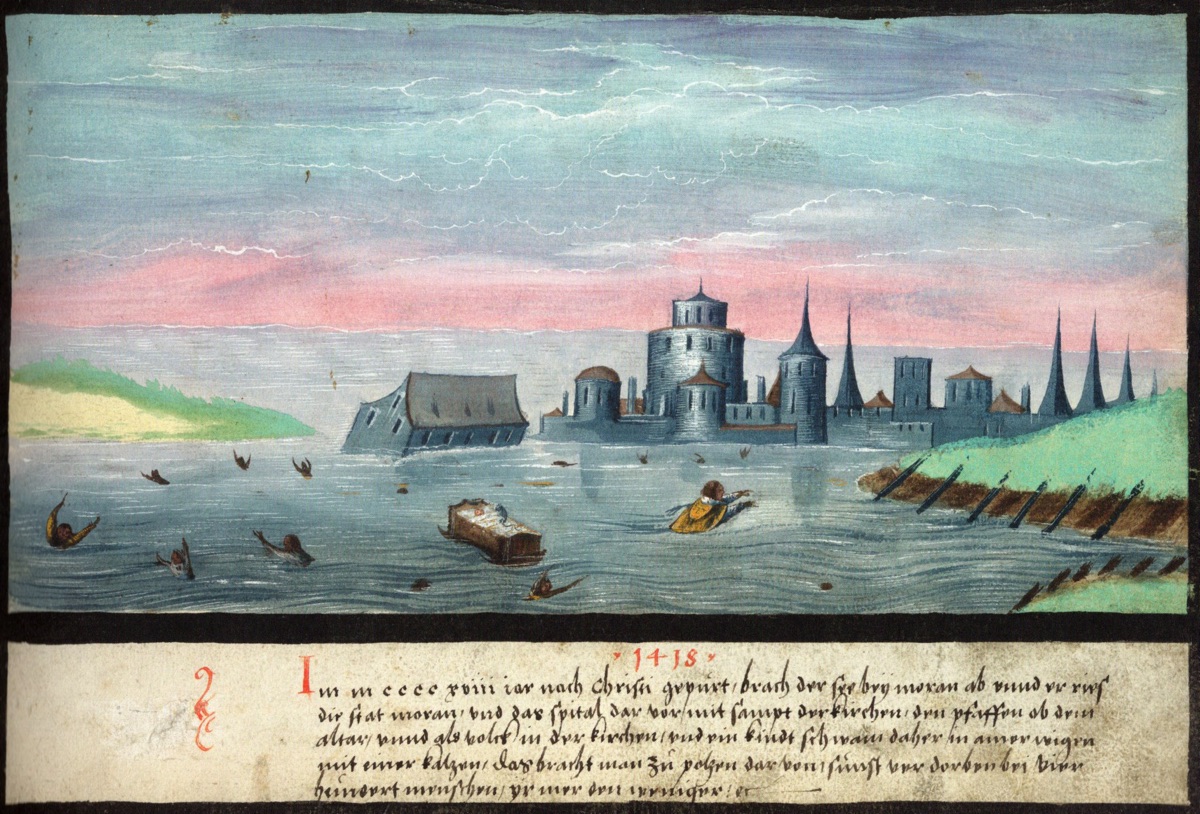 · 1418 ·
Im m cccc xviii iar nach Christi gepurt / brach der see bey moran ab vnnd er ries
die stat moran / vnd das spital dar vor / mit sampt der kirchen / den pfaffen ob dem
altar / vnnd als volck in der kirchen / vnd ein kindt schwam daher in ainer wigen
mit einer katzen / das bracht man zu potzen dar von / sunst ver dorben bei vier
hundert menschen / yr mer den weniger / ec